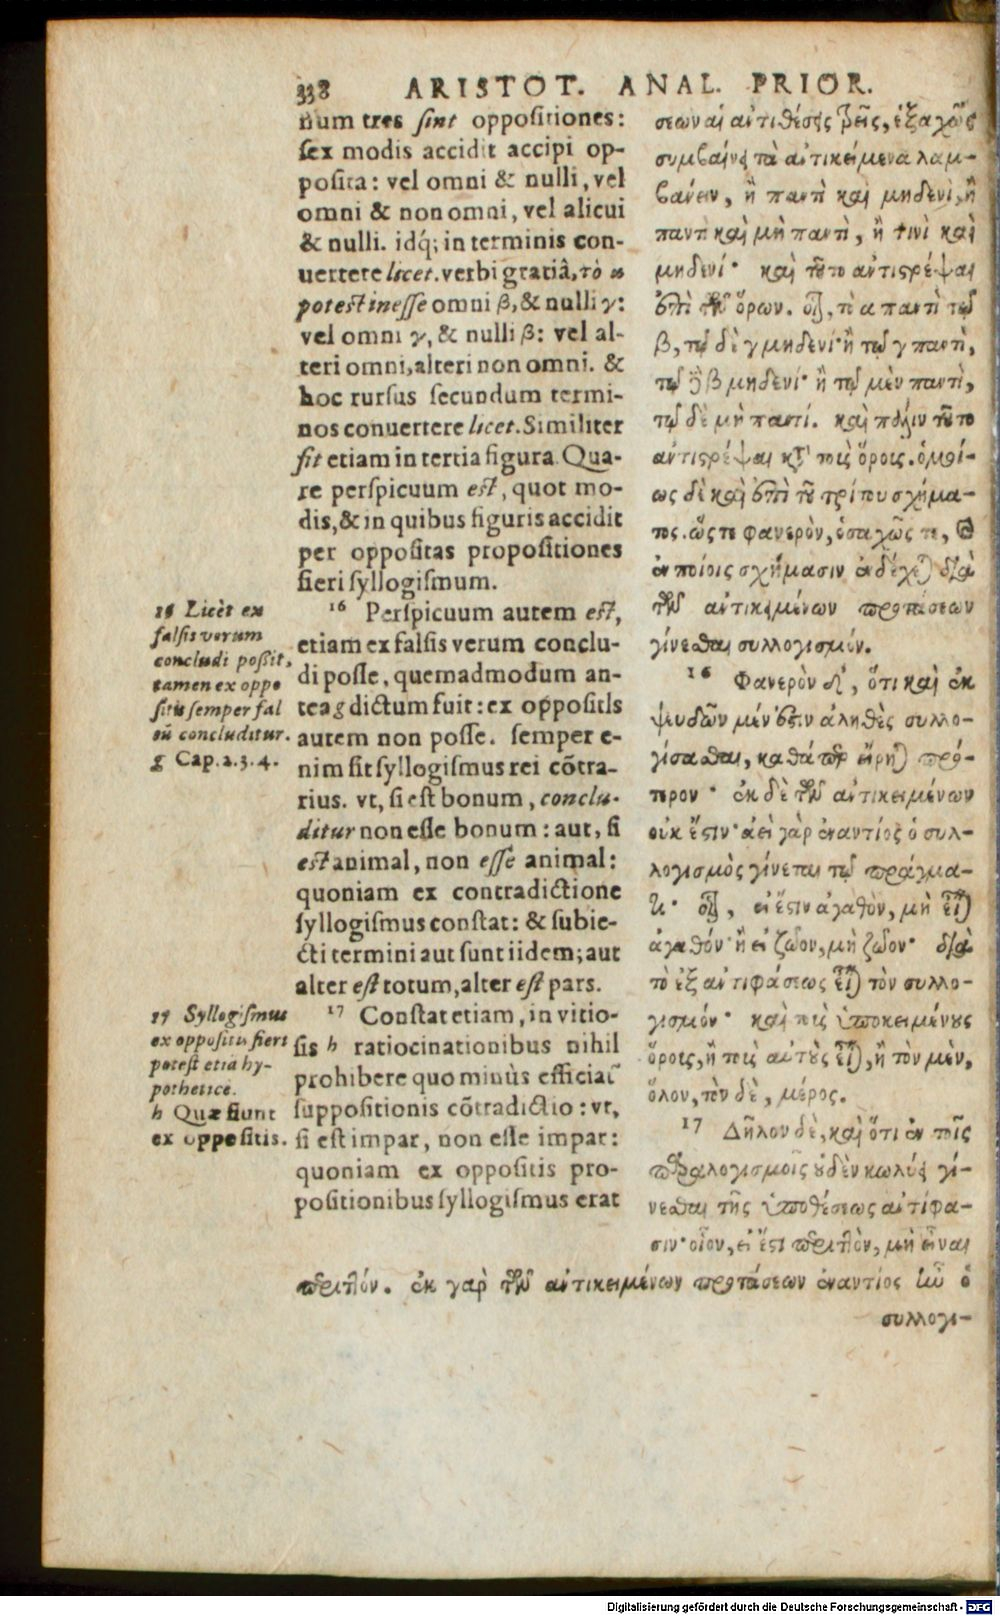 338 ARISTOT. ANAL. PRIOR.
num tres sint oppositiones:
sex modis accidit accipi op-
posita: vel omni & nulli, vel
omni & non omni, vel alicui
& nulli. idq́; in terminis con-
uertere licet. verbi gratiâ, τὸ α
potest inesse omni β, & nulli γ:
vel omni γ, & nulli β: vel al-
teri omni, alteri non omni. &
hoc rursus secundum termi-
nos conuertere licet. Similiter
fit etiam in tertia figura. Qua-
re perspicuum est, quot mo-
dis, & in quibus figuris accidit
per oppositas propositiones
fieri syllogismum.
16 Perspicuum autem est,
etiam ex falsis verum conclu-
di posse, quemadmodum an-
tea g dictum fuit: ex oppositis
autem non posse. semper e-
nim fit syllogismus rei cōtra-
rius. vt, si est bonum, conclu-
ditur non esse bonum: aut, si
est animal, non esse animal:
quoniam ex contradictione
syllogismus constat: & subie-
cti termini aut sunt iidem; aut
alter est totum, alter est pars.
17 Constat etiam, in vitio-
sis h ratiocinationibus nihil
prohibere quo minùs efficiat̃
suppositionis cōtradictio: vt,
si est impar, non esse impar:
quoniam ex oppositis pro-
positionibus syllogismus erat
16 Licèt ex
falsis verum
concludi possit,
tamen ex oppo
sitis semper fal
sū concluditur.
g Cap. 2. 3. 4.
17 Syllogismus
ex oppositis fieri
potest etiā hy-
pothetice.
h Quæ fiunt
ex oppositis.
σεων αἱ ἀντιθέσεις τρεῖς, ἑξαχῶς
συμβαίνει τὰ ἀντικείμενα λαμ-
βάνειν, ἢ παντὶ καὶ μηδενὶ, ἢ
παντὶ καὶ μὴ παντὶ, ἢ τινὶ καὶ
μηδενί· καὶ τοῦτο ἀντιστρέψαι
ἐπὶ τῶν ὅρων. οἷον, τὸ α παντὶ τῷ
β, τῷ δὲ γ μηδενί· ἢ τῷ γ παντὶ,
τῷ δὲ β μηδενί· ἢ τῷ μὲν παντὶ,
τῷ δὲ μὴ παντί. καὶ πάλιν τοῦτο
ἀντιστρέψαι κατὰ τοὺς ὅρους. ὁμοί-
ως δὲ καὶ ἐπὶ τοῦ τρίτου σχήμα-
τος. ὥστε φανερὸν, ὁσαχῶς τε, καὶ
ἐν ποίοις σχήμασιν ἐνδέχεται διὰ
τῶν ἀντικειμένων προτάσεων
γίνεσθαι συλλογισμόν.
16 Φανερὸν δὲ, ὅτι καὶ ἐκ
ψευδῶν μέν ἐστιν ἀληθὲς συλλο-
γίσασθαι, καθάπερ εἴρηται πρό-
τερον· ἐκ δὲ τῶν ἀντικειμένων
οὐκ ἔστιν· ἀεὶ γὰρ ἐναντίος ὁ συλ-
λογισμὸς γίνεται τῷ πράγμα-
τι· οἷον, εἰ ἔστιν ἀγαθὸν, μὴ εἶναι
ἀγαθόν· ἢ εἰ ζῶον, μὴ ζῶον· διὰ
τὸ ἐξ ἀντιφάσεως εἶναι τὸν συλλο-
γισμόν· καὶ τοὺς ὑποκειμένους
ὅρους, ἢ τοὺς αὐτοὺς εἶναι, ἢ τὸν μὲν,
ὅλον, τὸν δὲ, μέρος.
17 Δῆλον δὲ, καὶ ὅτι ἐν τοῖς
παραλογισμοῖς οὐδὲν κωλύει γί-
νεσθαι τῆς ὑποθέσεως ἀντίφα-
σιν· οἷον, εἰ ἔστι περιττὸν, μὴ εἶναι
περιττόν. ἐκ γὰρ τῶν ἀντικειμένων προτάσεων ἐναντίος ἦν ὁ
συλλογι-
Digitalisierung gefördert durch die Deutsche Forschungsgemeinschaft - DFG